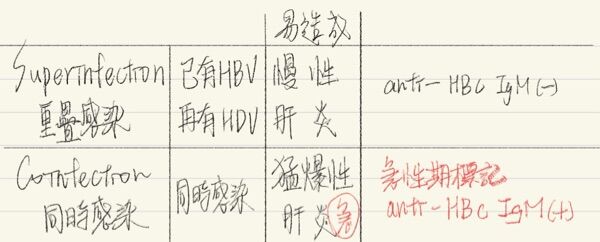 易造成
Superinfection 已有HBV 慢性 anti-HBc IgM(-)
重疊感染 再有HDV 肝炎
Coinfection 同時感染 猛爆性 急性期標記
同時感染 肝炎 急 anti-HBc IgM(+)